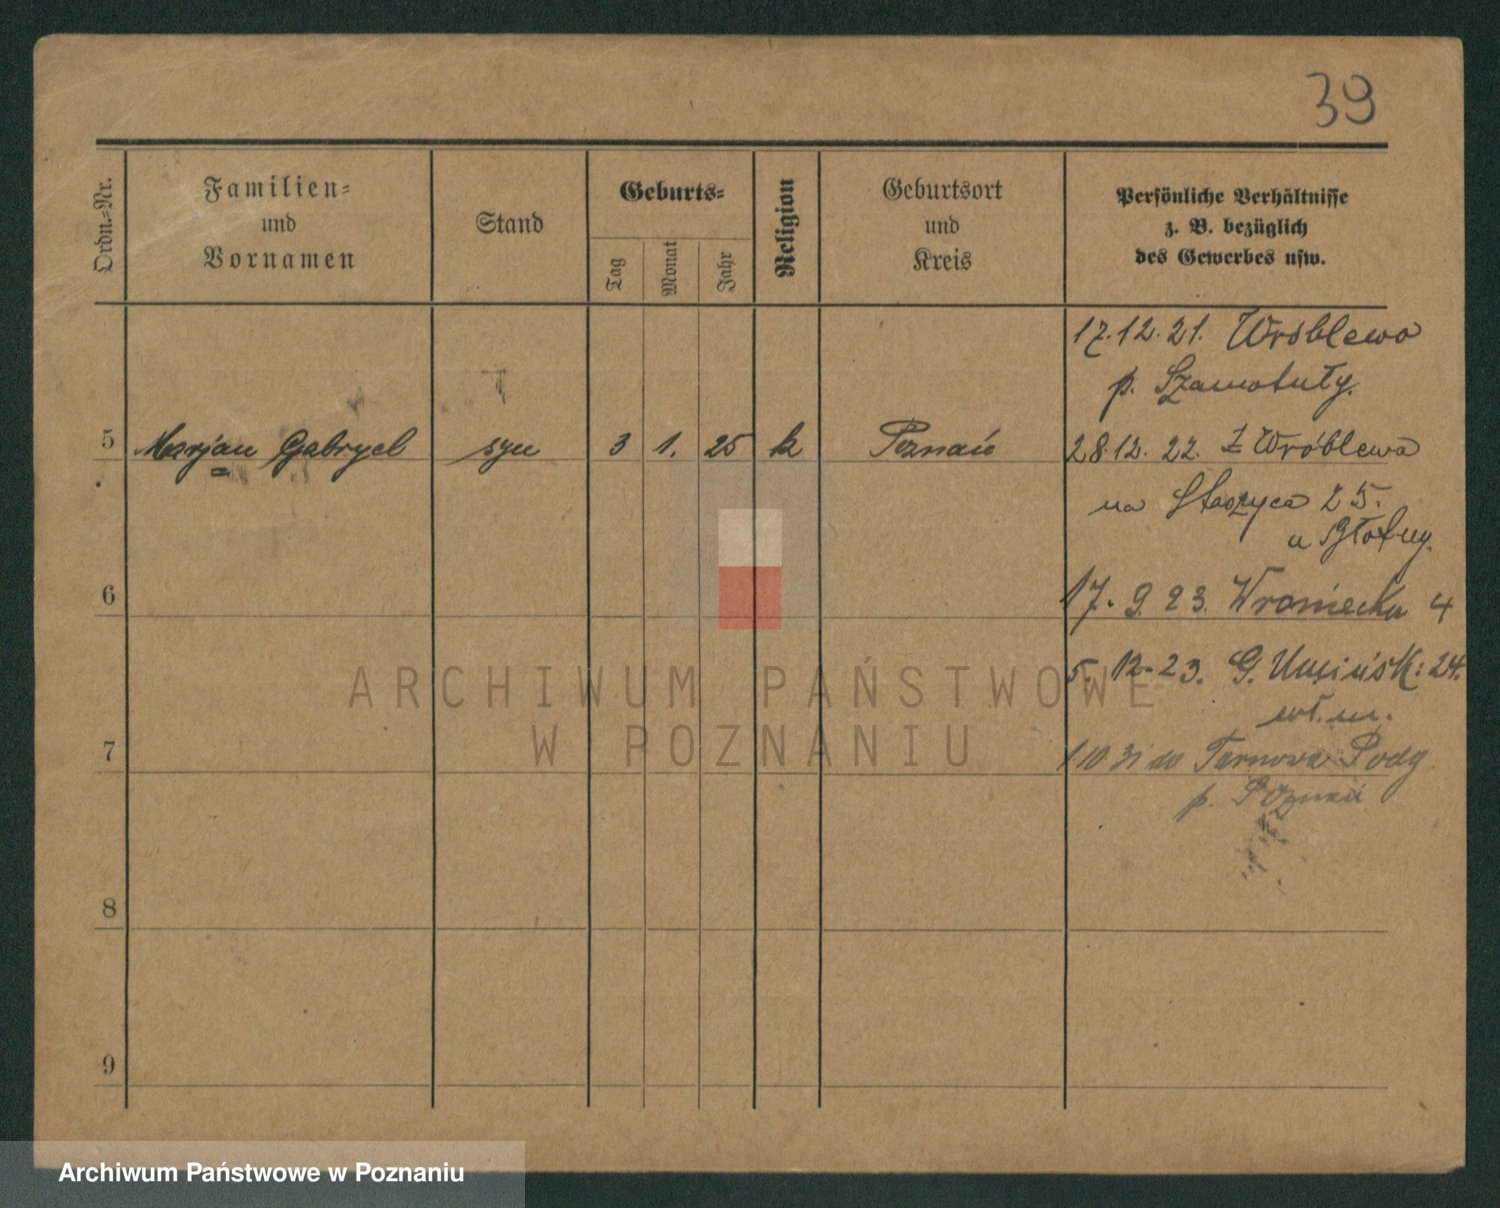 39
Ordn.-Nr.
Familien-
und
Vornamen
Stand
Geburts-
Tag
Monat
Jahr
Religion
Geburtsort
und
Kreis
Persönliche Verhältnisse
z. B. bezüglich
des Gewerbes usw.
17.12.21. Wróblewo
p. Szamotuły.
5 Marjan Gabryel syn 3 1. 25 k Poznań
28.12. 22. z Wróblewa
na Staszyca 25.
u
6
17. 9. 23. Wroniecka 4
5. 12. 23. G. 24.
wł. m.
7
1 10 31 do Tarnova Podg.
p. Poznań
8
9
ARCHIWUM PAŃSTWOWE
W POZNANIU
Archiwum Państwowe w Poznaniu